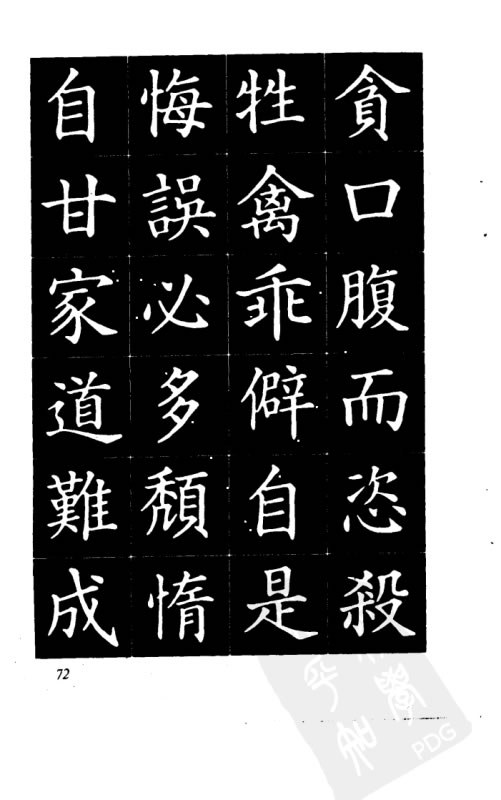 貪口腹而恣殺
牲禽乖僻自是
悔誤必多頹惰
自甘家道難成
72
PDG